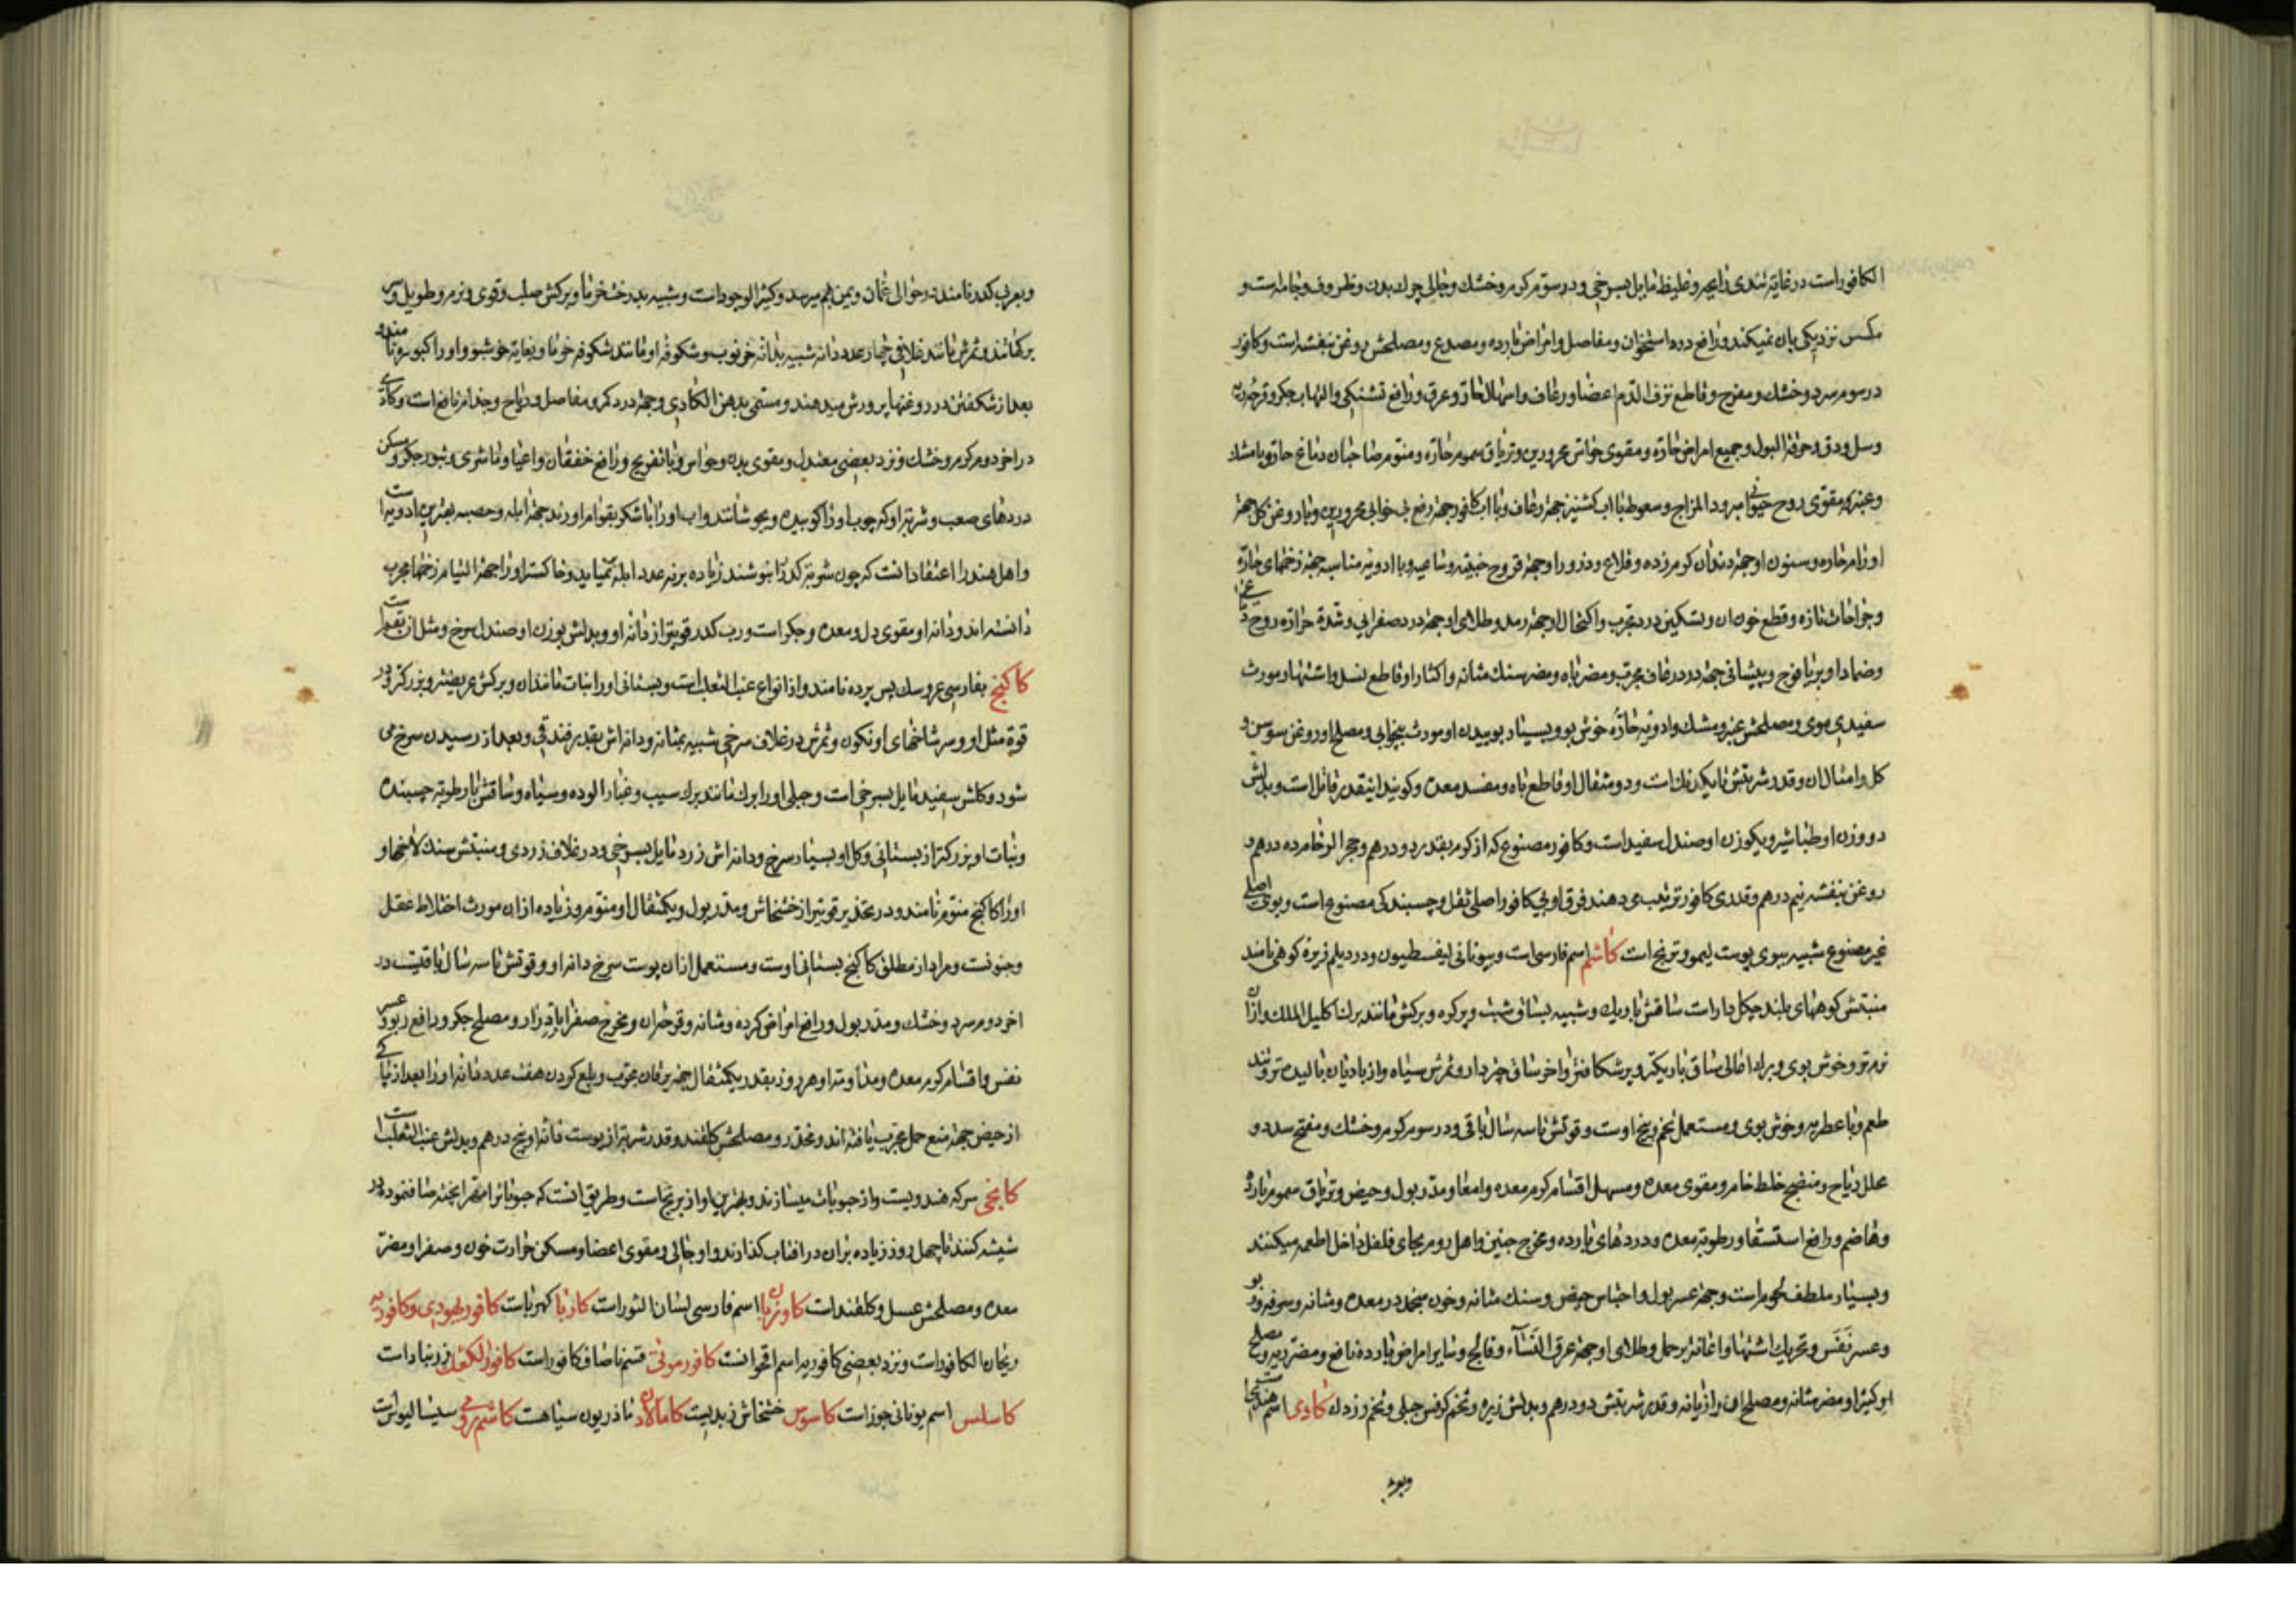 الکافور است در غایة تندی رایحه و غلیظ مایل بسرخی و در سوم کرم و خشک و جالی چرك بدن و ظروف و جامه است و
مکس نزدیکی بان نمیکند و رافع درد استخوان و مفاصل و امراض بارده و مصدع و مصلحش روغن بنفشه است و کافور
در سوم سرد و خشک و مفرح و قاطع نزف الدم اعضا و رعاف و اسهال حار و عرق و رافع تشنکی و التهاب جکر و قرحه ریه
وسل و دق و حرقة البول و جمیع امراض حاره و مقوی حواس محرورین و تریاق سموم حاره و منوم صاحبان دماغ حار و با مشك
و عنبر مقوی روح حیوانی مبرود المزاج و سعوط با اب کشنیز جهة رعاف و با اب کافور جهة رفع بی خوابی محرورین و با روغن کل جهة
اورام حاره و سنون او جهة دندان کرم زده و قلاع و ذرور او جهة قروح خبیثه و ساعیه و با ادویه مناسبه جهة زخمهای حاره
و جراحات تازه و قطع خون ان و تسکین درد مجرب و اکتحال او جهة رمد و طلای او جهة درد صفرایی و شدة حرارة روح دماغی
و ضماد او بر یافوخ و پیشانی جهة درد رعاف مجرب و مضر باه و مضر سنك مثانه و اکثار او قاطع نسل و اشتها و مورث
سفیدی موی و مصلحش عنبر و مشك و ادویه حاره خوش بو و بسیار بوییدن او مورث بیخوابی و مصلح او روغن سوسن و
کل و امثال ان و قدر شربتش تا یکدانك است و دو مثقال او قاطع باه و مفسد معده و کویند اینقدر قاتل است و بدلش
دو وزن او طباشیر و یکوزن او صندل سفید است و کافور مصنوع که از کوم بقدر دو درهم و حجر الرخام ده درهم و
روغن بنفشه نیم درهم و قدری کافور ترتیب می دهند فرق او بی کافور اصلی ثقل و چسبندکی مصنوع است و بوی اصلی
غیر مصنوع شبیه ببوی پوست لیمو و ترنج است کاشم اسم فارسی است و بیونانی لیفسطیون و در دیلم زیره کوهی نامند
منبتش کوههای بلند جنکل دار است ساقش باریك و شبیه بساق شبت و پر کره و برکش مانند برك اکلیل الملك و ازان
نرم تر و خوش بوی و برك اعالی ساق باریکتر و پر شکافتر و اخر ساق چتر دار و ثمرش سیاه و از بادیان بالیده تر و تند
طعم و با عطریه و خوش بوی و مستعمل تخم و بیخ اوست و قوتش تا سه سال باقی و در سوم کرم و خشك و مفتح سدد و
محلل ریاح و منضج خلط خام و مقوی معده و مسهل اقسام کرم معده و امعا و مدر بول و حیض و تریاق سموم بارده
و هاضم و رافع استسقا و رطوبة معده و دردهای بارده و مخرج جنین و اهل روم بجای فلفل داخل اطعمه میکنند
و بسیار ملطف لحوم است و جهة عسر بول و احتباس حیض و سنك مثانه و خون منجمد در معده و مثانه و سرفه و ربو
و عسر نفس و تحریك اشتها و اعانة بر حمل و طلای او جهة عرق النسآء و فالج و سایر امراض بارده نافع و مضر ریه و مصلح
او کتیرا و مضر مثانه و مصلح ان رازیانه و قدر شربتش دو درهم و بدلش زیره و تخم کرفس جبلی و تخم زردك کادی اسم هندیست
وبعربی
و بعربی کدر نامند در حوالی عمان و یمن بهم میرسد و کثیر الوجود است و شبیه بدرخت خرما و برکش صلب و قوی و نرم و طویل و سر
برکها تند و ثمرش مانند غلافی چهار عدد دانه شبیه بدانه خرنوب و شکوفه او مانند شکوفه خرما و بغایة خوشبو و او را کیوره نامند و
بعد از شکفتن در روغنها پرورش میدهند و مسمی بدهن الکادی و جهة درد کمر و مفاصل و ریاح و جذام نافع است و کادی
در اخر دوم کرم و خشك و نزد بعضی معتدل و مقوی بدن و حواس و با تفریح و رافع خفقان و اعیا و ماشری و بثور جکر و مسکن
دردهای صعب و شربة او که چوب او را کوبیده و بجوشانند و اب او را با شکر بقوام اورند جهة ابله و حصبه بهترین ادویه است
و اهل هند را اعتقاد انست که چون شربة کدر را بنوشند زیاده بر نه عدد ابله نمیاید و خاکستر او را جهة التیام زخمها مجرب
دانسته اند و دانه او مقوی دل و معده و جکر است و رب کدر قویتر از دانه او و بدلش بوزن او صندل سرخ و مثل ان بقم است
کاکنج بفارسی عروسك پس پرده نامند و از انواع عنب الثعلب است و بستانی او را نبات مانند ان و برکش عریضتر و بزرکتر و در
قوة مثل او و سر شاخهای او نکون و ثمرش در غلاف سرخی شبیه بمثانه و دانه اش بقدر فندقی و بعد از رسیدن سرخ می
شود و کلش سفید مایل بسرخی است و جبلی او را برك مانند برك سیب و غبار الوده و سیاه و ساقش با رطوبة چسبنده
و نبات او بزرکتر از بستانی و کل او بسیار سرخ و دانه اش زرد مایل بسرخی و در غلاف زردی و منبتش سنك لاخها و
او را کاکنج منوم نامند و در تخدیر قویتر از خشخاش و مدر بول و یکمثقال او منوم و زیاده از ان مورث اختلاط عقل
و جنونست و مراد از مطلق کاکنج بستانی اوست و مستعمل ازان پوست سرخ دانه او و قوتش تا سه سال باقیست در
اخر دوم سرد و خشك و مدر بول و رافع امراض کرده و مثانه و قرحه ان و مخرج صفرا بادرار و مصلح جکر و رافع ربو و عسر
نفس و اقسام کرم معده و مداومة او هر روز بقدر یکمثقال جهة یرقان مجرب و بلع کردن هفت عدد دانه او را بعد از پاکی
از حیض جهة منع حمل مجرب یافته اند و مخدر و مصلحش کلقند و قدر شربة از پوست دانه او پنج درهم و بدلش عنب الثعلب است
کانجی سرکه هندویست و از حبوبات میسازند و بهترین او از برنج است و طریق انست که حبوبات را مهرا پخته صاف نموده در
شیشه کنند تا چهل روز زیاده بران در افتاب کذارند و او جالی و مقوی اعضا و مسکن حرارت خون و صفرا و مضر
معده و مصلحش عسل و کلقند است کاو زبان اسم فارسی لسان الثور است کاربا کهرباست کافور یهودی و کافوریه
ریحان الکافور است و نزد بعضی کافوریه اسم اقحوانست کافور موتی قسم ناصاف کافور است کافور الکعك زرنباد است
کاسلس اسم یونانی جوز است کاسوس خشخاش زبدیست کامالاون ماذریون سیاهست کاشم رومی سیسالیوس است